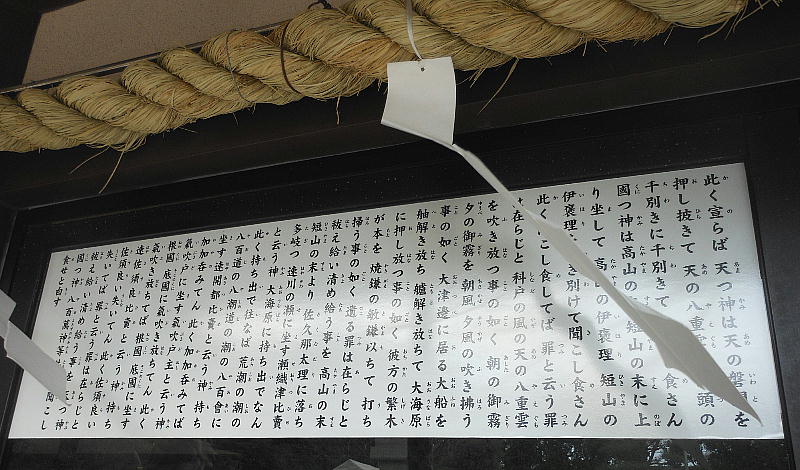 此く宣らば 天つ神は天の磐を
押し披きて 天の八重頭の
千別きに千別きて 食さん
國つ神は高山の 短山の末に上
り坐して 高山の伊褒理 短山の
伊褒理き別けて聞こし食さん
此くこし食してば 罪と云う罪
は在らじと 科戸の風の天の八重雲
を吹き放つ事の如く 朝の御霧
夕の御霧を 朝風夕風の吹き拂う
事の如く 大津邊に居る大船を
舳解き放ち 艫解き放ちて 大海原
に押し放つ事の如く 彼方の繁木
が本を 焼鎌の敏鎌以ちて 打ち
掃う事の如く 遺る罪は在らじと
祓え給い清め給う事を 高山の末
短山の末より 佐久那太理に落ち
多岐つ 速川の瀬に坐す瀬織津比賣
と云う神 大海原に持ち出でなん
此く持ち出で往なば 荒潮の潮の
八百道の八潮道の潮の八百會に
坐す速開都比賣と云う神 持ち
加加呑みてん 此く加加呑みてば
氣吹戸に坐す氣吹戸主と云う神
根國 底國に氣吹き放ちてん 此く
氣吹き放ちてば 根國 底國に坐す
速佐須良比賣と云う神 持ち
佐須良い失いてん 此く佐須良い
失いてば 罪と云う罪は在らじと
祓え給い清め給う事を 天つ神
國つ神 八百萬神等 聞こし
食せと白す